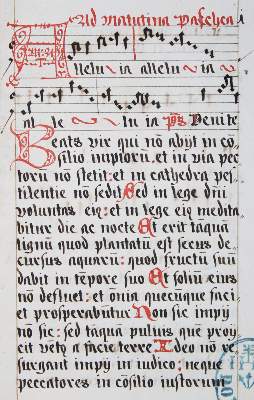 Ad matutina paschea
Alleluia alleluia
alleluia ps Venite
Beatꝰ vir qui nō abijt in cō
silio impiorū: et in via pec
torū nō stetit: et in cathedra pes
tilentie nō sedit Sed in lege dn̄i
voluntas eiꝰ: et in lege eiꝰ medita
bitur die ac nocte Et erit tāquā
lignū quod plantatū est secus de
cursus aquarū: quod fructū suū
dabit in tēpore suo Et foliū eius
nō defluet: et om̄ia quecūque faci
et prosperabūtur Non sic impij
nō sic: sed tāquā puluis que proij
cit vētꝰ a facie terre Ideo nō re
surgunt impij in iudico: neque
peccatores in cōsilio iustorum